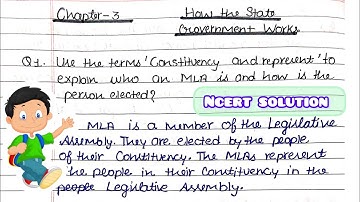 Chapter-3 How the State
Government Works
Q1. Use the terms 'Constituency and represent' to
explain who an MLA is and how is the
person elected?
NCERT SOLUTION
MLA is a member of the Legislative
Assembly. They are elected by the people
of their Constituency. The MLAs represent
the people in their constituency in the
people Legislative Assembly.